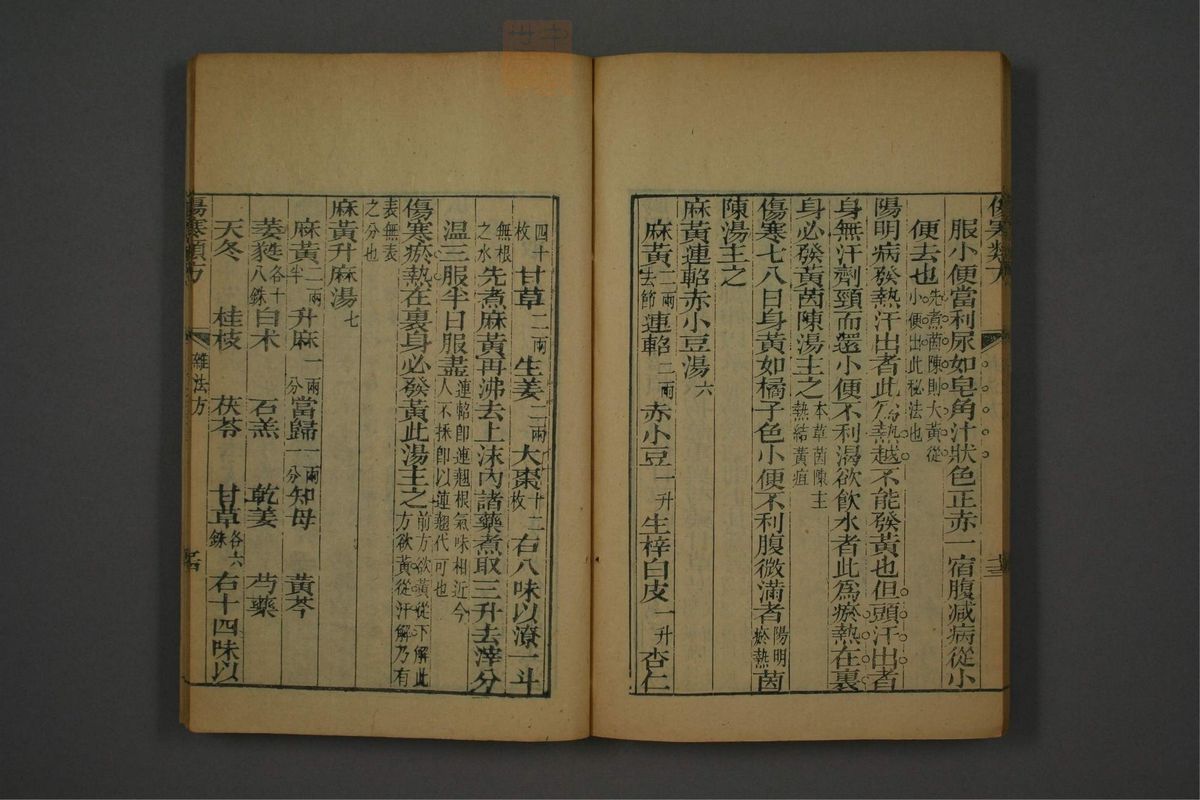 服小便當利尿如皂角汁狀色正赤一宿腹減病從小
便去也先煮茵陳則大黃從小便出此秘法也
陽明病發熱汗出者此為熱越不能發黃也但頭汗出者
身無汗劑頸而還小便不利渴欲飲水者此爲瘀熱在裏
身必發黃茵陳湯主之本草茵陳主熱結黃疸
傷寒七八日身黃如橘子色小便不利腹微滿者陽明瘀熱茵
陳湯主之
麻黃連軺赤小豆湯六
麻黃二兩去節連軺二兩赤小豆一升生梓白皮一升杏仁
四十枚甘草二兩生姜二兩大棗十二枚右八味以潦一斗
無根之水先煮麻黃再沸去上沫內諸藥煮取三升去滓分
溫三服半日服盡連軺卽連翹根氣味相近今人不採卽以連翹代可也
傷寒瘀熱在裏身必發黃此湯主之前方欲黃從下解此方欲黃從汗解乃有
表無表之分也
麻黃升麻湯七
麻黃二兩半升麻一兩一分當歸一兩一分知母 黃芩
萎蕤各十八銖白朮 石羔 乾姜 芍藥
天冬 桂枝 茯苓 甘草各六銖右十四味以
傷寒類方
雜法方